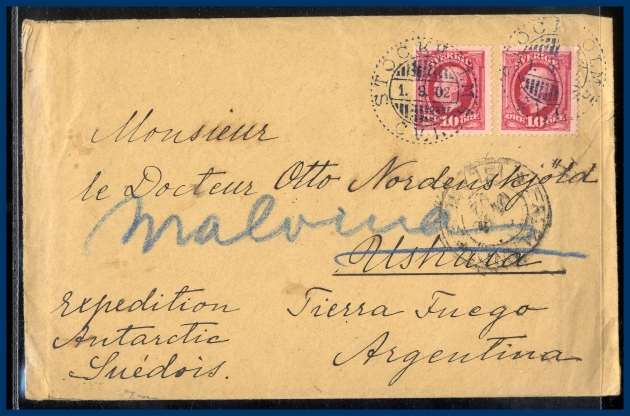 STOCKHOLM
1.8.02
SVERIGE
10 ÖRE
STOCKHOLM
SVERIGE
ÖRE 10
Monsieur
le Docteur Otto Nordenskjöld
Malvina
Ushuia
Expedition
Antarctic
Suédois.
Tierra Fuego
Argentina